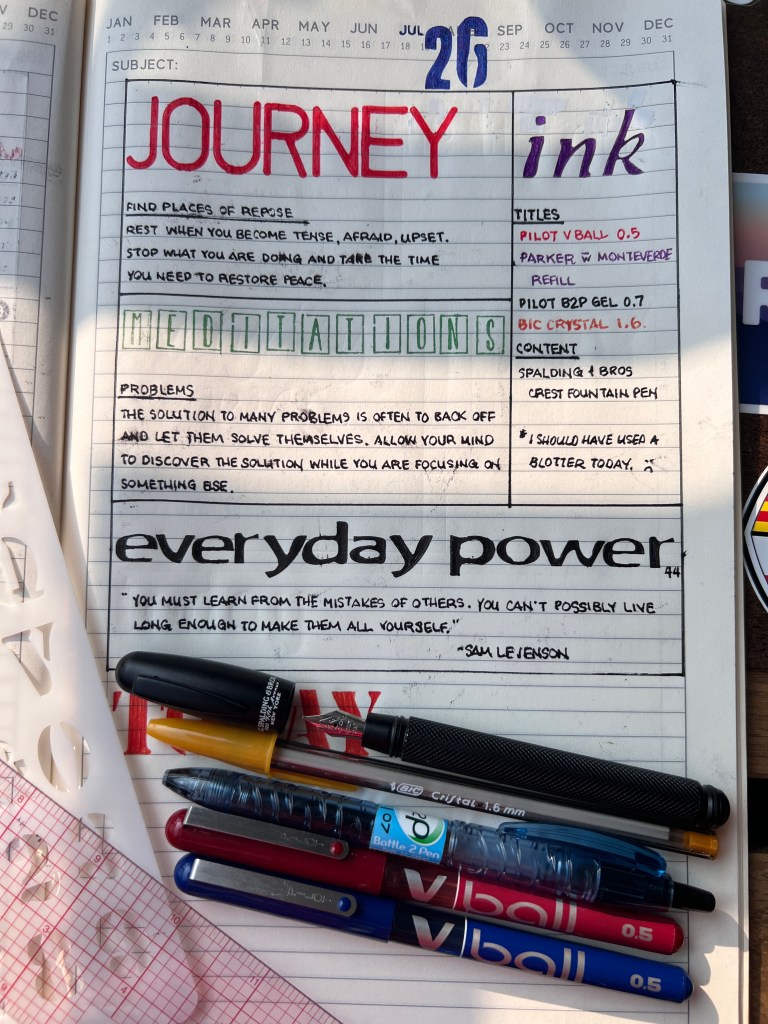 DEC
JAN FEB MAR APR MAY JUN JUL SEP OCT NOV DEC
30 31
1 2 3 4 5 6 7 8 9 10 11 12 13 14 15 16 17 18 19 23 24 25 26 27 28 29 30 31
26
SUBJECT:
JOURNEY
FIND PLACES OF REPOSE
REST WHEN YOU BECOME TENSE, AFRAID, UPSET.
STOP WHAT YOU ARE DOING AND TAKE THE TIME
YOU NEED TO RESTORE PEACE.
MEDITATIONS
PROBLEMS
THE SOLUTION TO MANY PROBLEMS IS OFTEN TO BACK OFF
AND LET THEM SOLVE THEMSELVES. ALLOW YOUR MIND
TO DISCOVER THE SOLUTION WHILE YOU ARE FOCUSING ON
SOMETHING ELSE.
ink
TITLES
PILOT V BALL 0.5
PARKER w̄ MONTEVERDE
REFILL
PILOT B2P GEL 0.7
BIC CRYSTAL 1.6.
CONTENT
SPALDING & BROS
CREST FOUNTAIN PEN
*I SHOULD HAVE USED A
BLOTTER TODAY.
everyday power
44
"YOU MUST LEARN FROM THE MISTAKES OF OTHERS. YOU CAN'T POSSIBLY LIVE
LONG ENOUGH TO MAKE THEM ALL YOURSELF."
~SAM LEVENSON
SPALDING & BROS
NEW YORK
BIC Cristal 1.6 mm
2p
Bottle 2 Pen
07
V ball 0.5
V ball 0.5